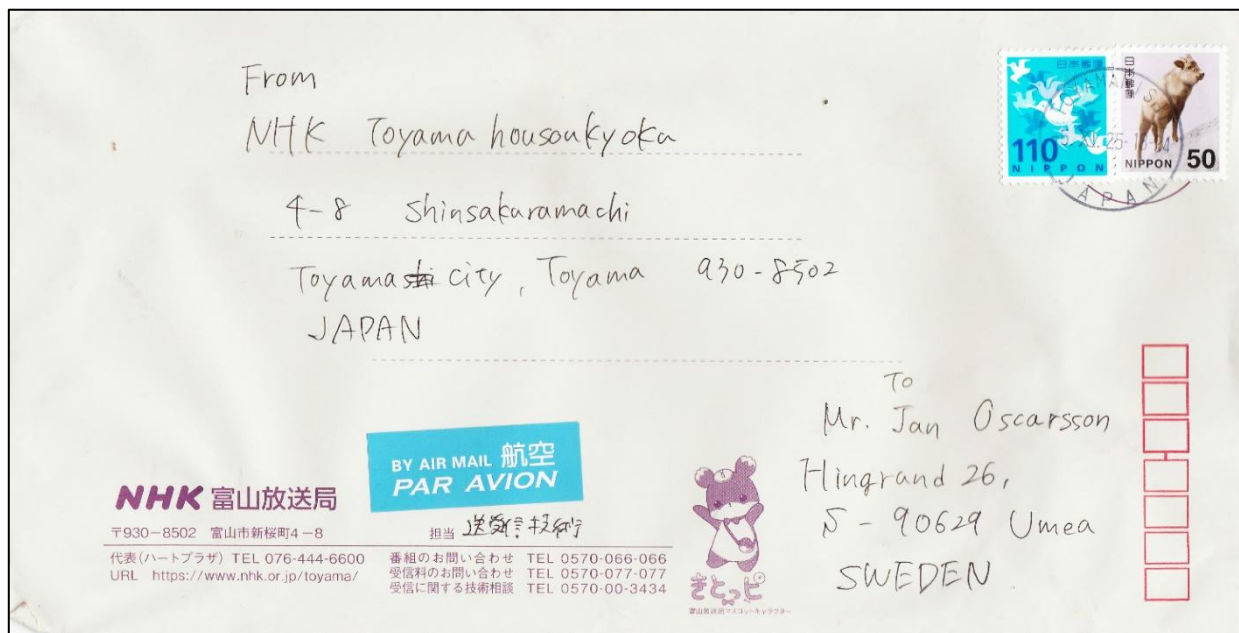 From
NHK Toyama housoukyoka
4-8 Shinsakuramachi
Toyama city, Toyama 930-8502
JAPAN
日本郵便
110
NIPPON
日本郵便
NIPPON 50
JAPAN
To
Mr. Jan Oscarsson
Hingrand 26,
S-90629 Umea
SWEDEN.
BY AIR MAIL 航空
PAR AVION
NHK 富山放送局
〒930-8502 富山市新桜町4-8
担当 送受信技術
代表(ハートプラザ) TEL 076-444-6600
URL https://www.nhk.or.jp/toyama/
番組のお問い合わせ TEL 0570-066-066
受信料のお問い合わせ TEL 0570-077-077
受信に関する技術相談 TEL 0570-00-3434
きとっピ
富山放送局マスコットキャラクター